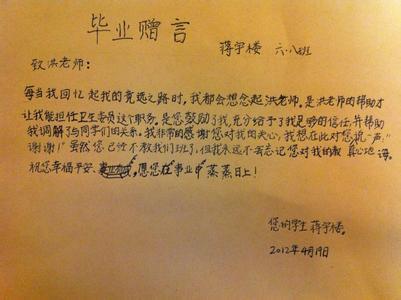 毕业赠言
蒋宇楼 六·八班
致洪老师：
每当我回忆起我的竞选之路时，我都会想念起洪老师，是洪老师的帮助才
让我能担任卫生委员这个职务。是您鼓励了我，充分给予了我足够的信任，并帮助
我调解了与同学们的关系。我非常的感谢您对我的关心，我想在此对您说一声，
"谢谢！"虽然您已经不教我们班了，但我永远不会忘记您对我的教 真心地 诲。
祝您幸福平安、愿您在事业中蒸蒸日上！
您的学生 蒋宇楼。
2012年4月19日